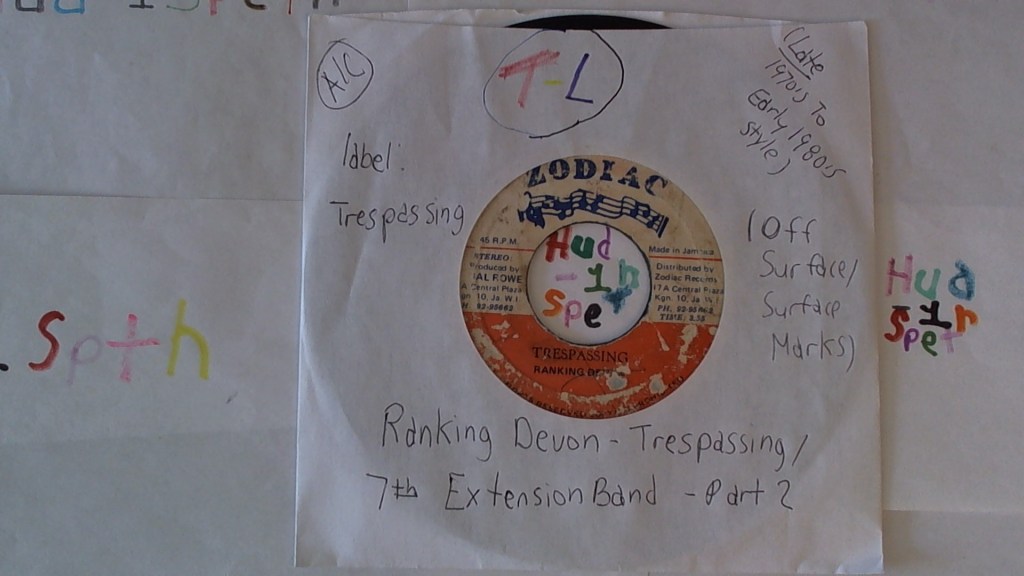 A/C
T-L
(Late
1970's To
Early 1980's
style)
label:
Trespassing
ZODIAC
45 R.P.M.
STEREO
Produced by
AL ROWE
A Central Plaza
Kgn 10, Ja W I
Made in Jamaica
Distributed by
Zodiac Records
17A Central Plaza
Kgn. 10, Ja. W I
TIME: 3.35
Hud
-1h
spet
TRESPASSING
RANKING DEVON
(Off
Surface/
Surface
Marks)
Hud
spet
. spth
Ranking Devon - Trespassing/
7th Extension Band - Part 2